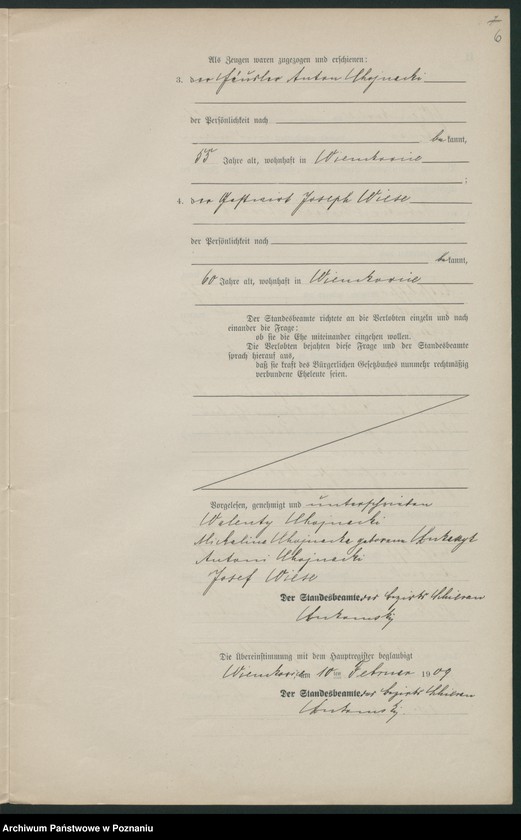 6
Als Zeugen waren zugezogen und erschienen:
3. der Häusler Anton Chojnacki
der Persönlichkeit nach
bekannt,
55 Jahre alt, wohnhaft in
;
4. der Gastwirt Joseph Wiese
der Persönlichkeit nach
bekannt,
60 Jahre alt, wohnhaft in
Der Standesbeamte richtete an die Verlobten einzeln und nach
einander die Frage:
ob sie die Ehe miteinander eingehen wollen.
Die Verlobten bejahten diese Frage und der Standesbeamte
sprach hierauf aus,
daß sie kraft des Bürgerlichen Gesetzbuches nunmehr rechtmäßig
verbundene Eheleute seien.
Vorgelesen, genehmigt und unterschrieben
Walenty Chojnacki
Michalina Chojnacka geborene
Antoni Chojnacki
Josef Wiese
Der Standesbeamte des Bezirks
Die Übereinstimmung mit dem Hauptregister beglaubigt
am 10 ten Februar 1909
Der Standesbeamte des Bezirks
Archiwum Państwowe w Poznaniu
www.szukajwarchiwach.gov.pl